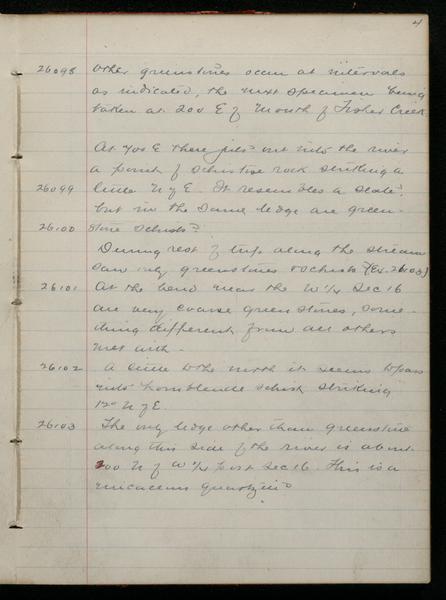 4
26098 Other greenstones occur at intervals
as indicated, the next specimen being
taken at 200 E of Mouth of Fisher Creek.
At 700 E there juts out into the river
a point of schistose rock striking a
26099 little N of E. It resembles a slate?
but in the same ledge are green-
26100 stone schists?
During rest of trip along the stream
saw only greenstones & schists (Ex. 26103)
26101 At the bend near the W 1/4 Sec 16
are very coarse greenstones, some-
thing different from all others
met with.
26102 A little to the north it seems to pass
into hornblende schist striking
12° N of E.
26103 The only ledge other than greenstone
along this side of the river is about
200 N of W 1/4 post Sec 16. This is a
micaceous quartzite?